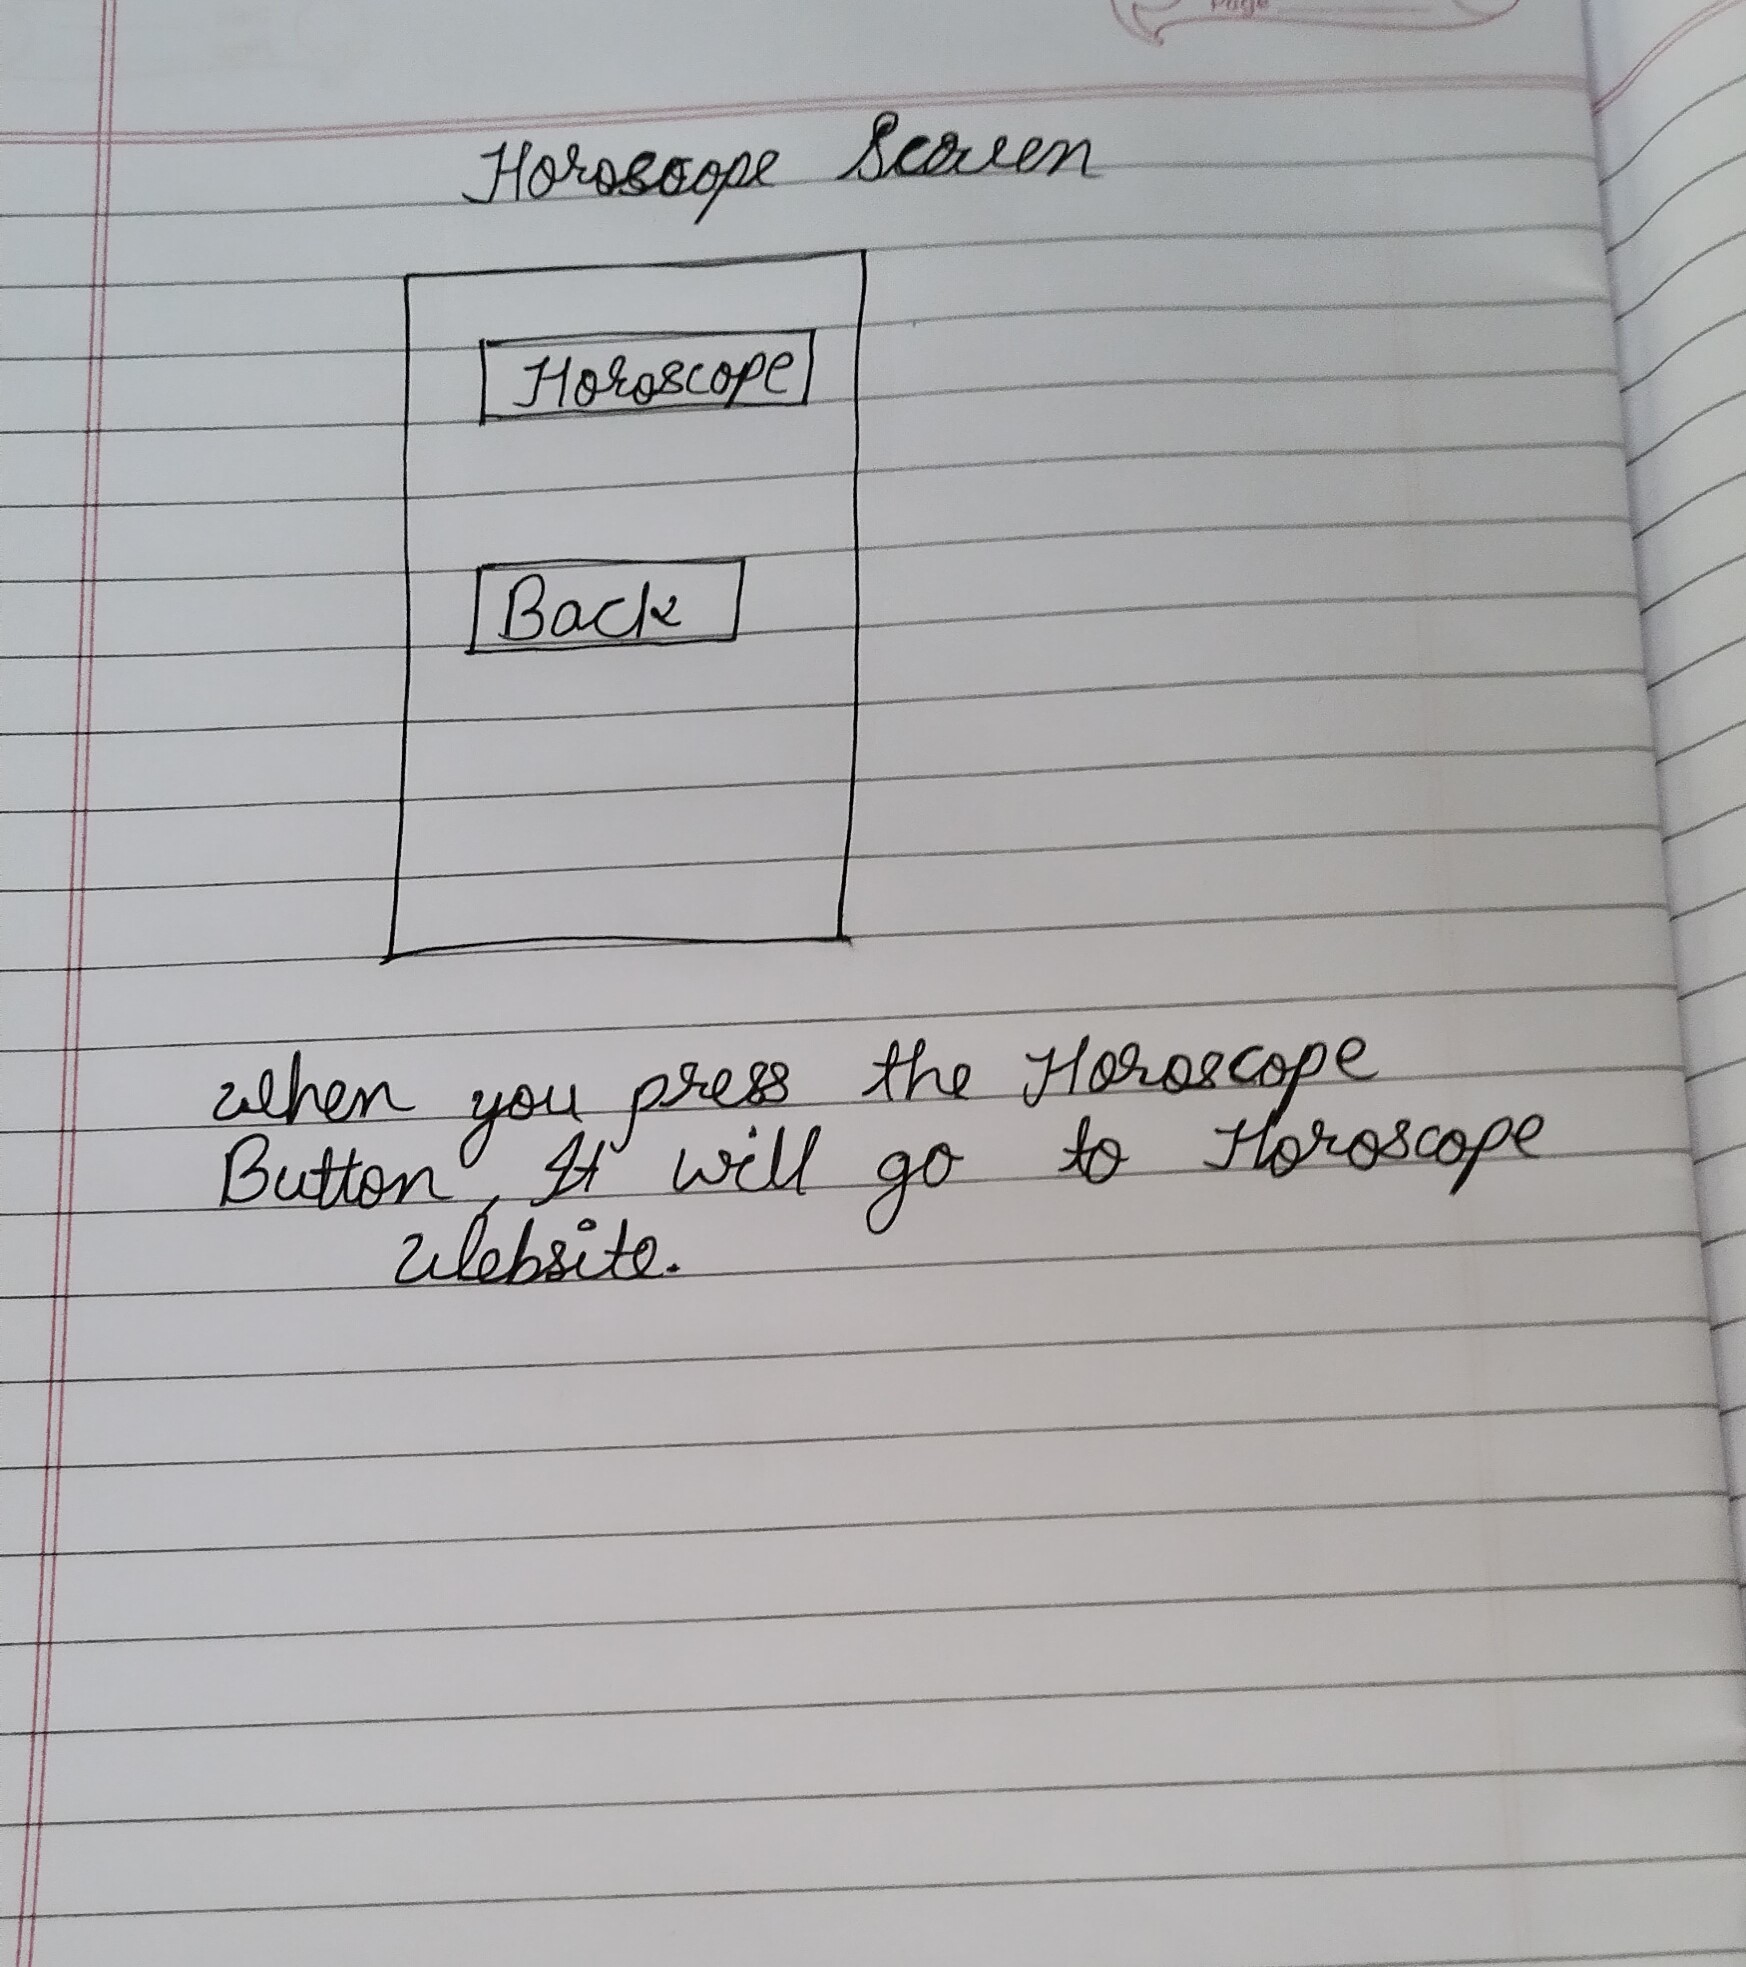 Page
Horoscope Screen
Horoscope
Back
when you press the Horoscope
Button, It will go to Horoscope
Website.